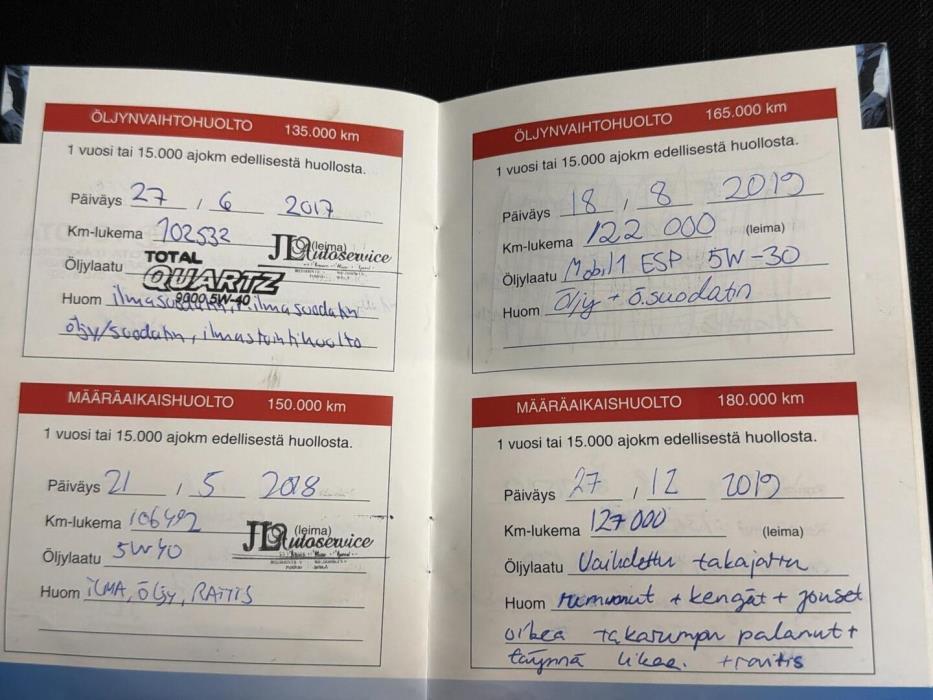 ÖLJYNVAIHTOHUOLTO 135.000 km
1 vuosi tai 15.000 ajokm edellisestä huollosta.
Päiväys 27 , 6 2017
Km-lukema 102532 (leima)
JL Autoservice
Öljylaatu TOTAL QUARTZ
9000 5W-40
Huom ilmasuodatin, r.ilmasuodatin
öljy/suodatin, ilmastointihuolto
MÄÄRÄAIKAISHUOLTO 150.000 km
1 vuosi tai 15.000 ajokm edellisestä huollosta.
Päiväys 21 , 5 2018
Km-lukema 106492 (leima)
JL Autoservice
Öljylaatu 5W40
Huom iLMA, Öljy, RAITIS
ÖLJYNVAIHTOHUOLTO 165.000 km
1 vuosi tai 15.000 ajokm edellisestä huollosta.
Päiväys 18 , 8 2019
Km-lukema 122 000 (leima)
Öljylaatu Mobil1 ESP 5W-30
Huom Öljy + ö.suodatin
MÄÄRÄAIKAISHUOLTO 180.000 km
1 vuosi tai 15.000 ajokm edellisestä huollosta.
Päiväys 27 , 12 2019
Km-lukema 127000 (leima)
Öljylaatu Vaihdettu takajarru
Huom rummut + kengät + jouset
oikea takarumpu palanut +
täynnä likaa. + raitis